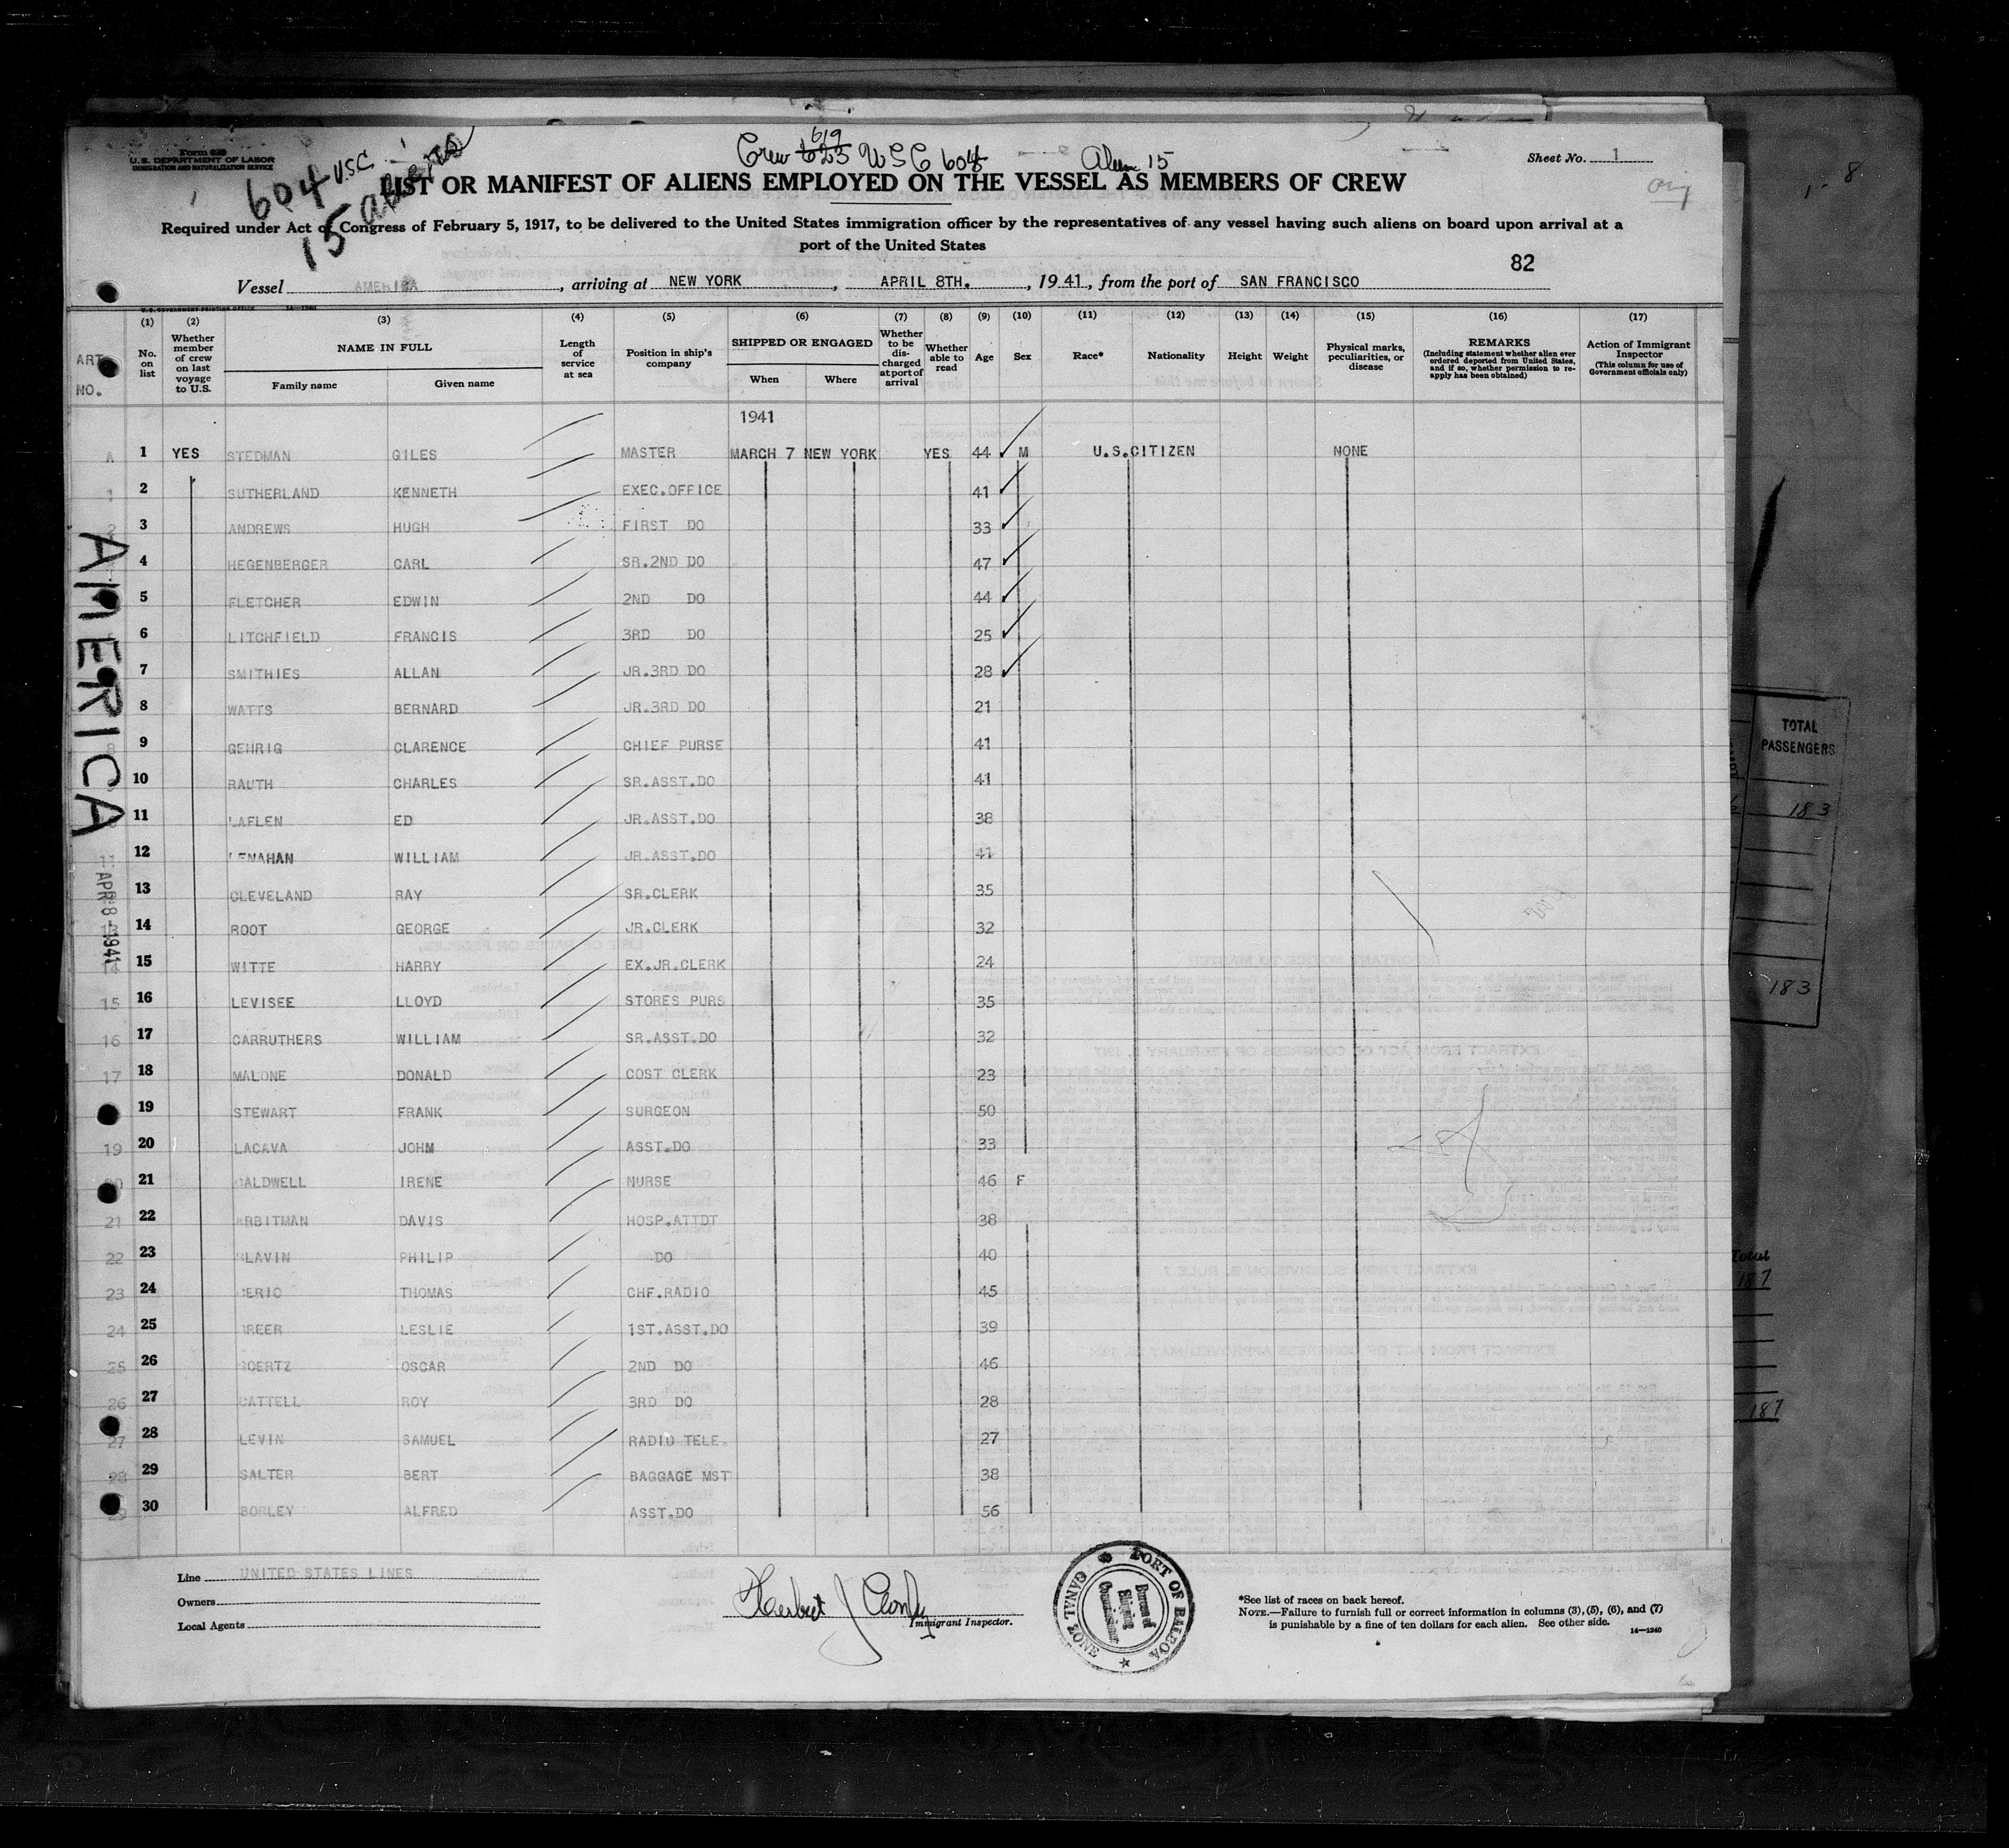 Form 680
U.S. DEPARTMENT OF LABOR
IMMIGRATION AND NATURALIZATION SERVICE
604 U.S.C
15 aliens
619
Crew 623 USC 604 Alien 15
Sheet No. 1
LIST OR MANIFEST OF ALIENS EMPLOYED ON THE VESSEL AS MEMBERS OF CREW
Orig
Required under Act of Congress of February 5, 1917, to be delivered to the United States immigration officer by the representatives of any vessel having such aliens on board upon arrival at a
port of the United States
82
Vessel AMERICA, arriving at NEW YORK, APRIL 8TH., 1941, from the port of SAN FRANCISCO
U.S. GOVERNMENT PRINTING OFFICE 14—1240
(1) (2) (3) (4) (5) (6) (7) (8) (9) (10) (11) (12) (13) (14) (15) (16) (17)
ART. NO.
No. on list
Whether member of crew on last voyage to U.S.
NAME IN FULL
Family name Given name
Length of service at sea
Position in ship's company
SHIPPED OR ENGAGED
When Where
Whether to be discharged at port of arrival
Whether able to read
Age
Sex
Race*
Nationality
Height
Weight
Physical marks, peculiarities, or disease
REMARKS
(Including statement whether alien ever ordered deported from United States, and if so, whether permission to reapply has been obtained)
Action of Immigrant Inspector
(This column for use of Government officials only)
1941
A 1 YES STEDMAN GILES MASTER MARCH 7 NEW YORK YES 44 M U.S.CITIZEN NONE
1 2 SUTHERLAND KENNETH EXEC.OFFICE 41
2 3 ANDREWS HUGH FIRST DO 33
4 HEGENBERGER CARL SR.2ND DO 47
5 FLETCHER EDWIN 2ND DO 44
6 LITCHFIELD FRANCIS 3RD DO 25
7 SMITHIES ALLAN JR.3RD DO 28
8 WATTS BERNARD JR.3RD DO 21
9 GEHRIG CLARENCE CHIEF PURSE 41
10 RAUTH CHARLES SR.ASST.DO 41
11 LAFLEN ED JR.ASST.DO 38
12 LENAHAN WILLIAM JR.ASST.DO 41
13 CLEVELAND RAY SR.CLERK 35
14 ROOT GEORGE JR.CLERK 32
14 15 WITTE HARRY EX.JR.CLERK 24
15 16 LEVISEE LLOYD STORES PURS 35
16 17 CARRUTHERS WILLIAM SR.ASST.DO 32
17 18 MALONE DONALD COST CLERK 23
19 STEWART FRANK SURGEON 50
19 20 LACAVA JOHM ASST.DO 33
20 21 CALDWELL IRENE NURSE 46 F
21 22 ARBITMAN DAVIS HOSP.ATTDT 38
22 23 SLAVIN PHILIP DO 40
23 24 THOMAS CHF.RADIO 45
24 25 GREER LESLIE 1ST.ASST.DO 39
25 26 GOERTZ OSCAR 2ND DO 46
26 27 CATTELL ROY 3RD DO 28
27 28 LEVIN SAMUEL RADIO TELE. 27
28 29 SALTER BERT BAGGAGE MST 38
29 30 BORLEY ALFRED ASST.DO 56
AMERICA
APR 8 - 1941
Line UNITED STATES LINES
Owners
Local Agents
Immigrant Inspector.
PORT OF BALBOA
CANAL ZONE
Bureau of Shipping Commissioner
*See list of races on back hereof.
NOTE.—Failure to furnish full or correct information in columns (3), (5), (6), and (7)
is punishable by a fine of ten dollars for each alien. See other side.
14—1240
1 - 8
TOTAL
PASSENGERS
183
183
Total
187
187